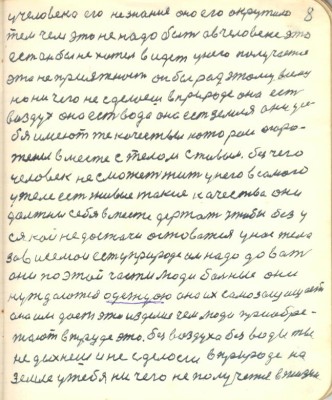 8
у человека его незнание оно его окружило
тем чем это не надо быть а в человеке это
есть он бы не хотел видеть у него получается
это неприятность он бы рад этому виду
но ничего не сделаешь в природе она есть
воздух она есть вода она есть земля они у се-
бя имеют те качества которые окру-
жены вместе с телом с живым. без чего
человек не сможет жить у него в самого
у тела есть живые такие качества они
должны себя вместе держать чтобы без у
сякой недостачи оставатся у нас тела
зависемости есть у природе им надо давать
они по этой части люди больные они
нуждаются одежуою она их самозащищает
она им дает это изделие чем люди приобре-
тают в труде это, без воздуха без воды ты
не дыхнеш и не сделаеш в природе на
земле у тебя ничего не получется в жизни